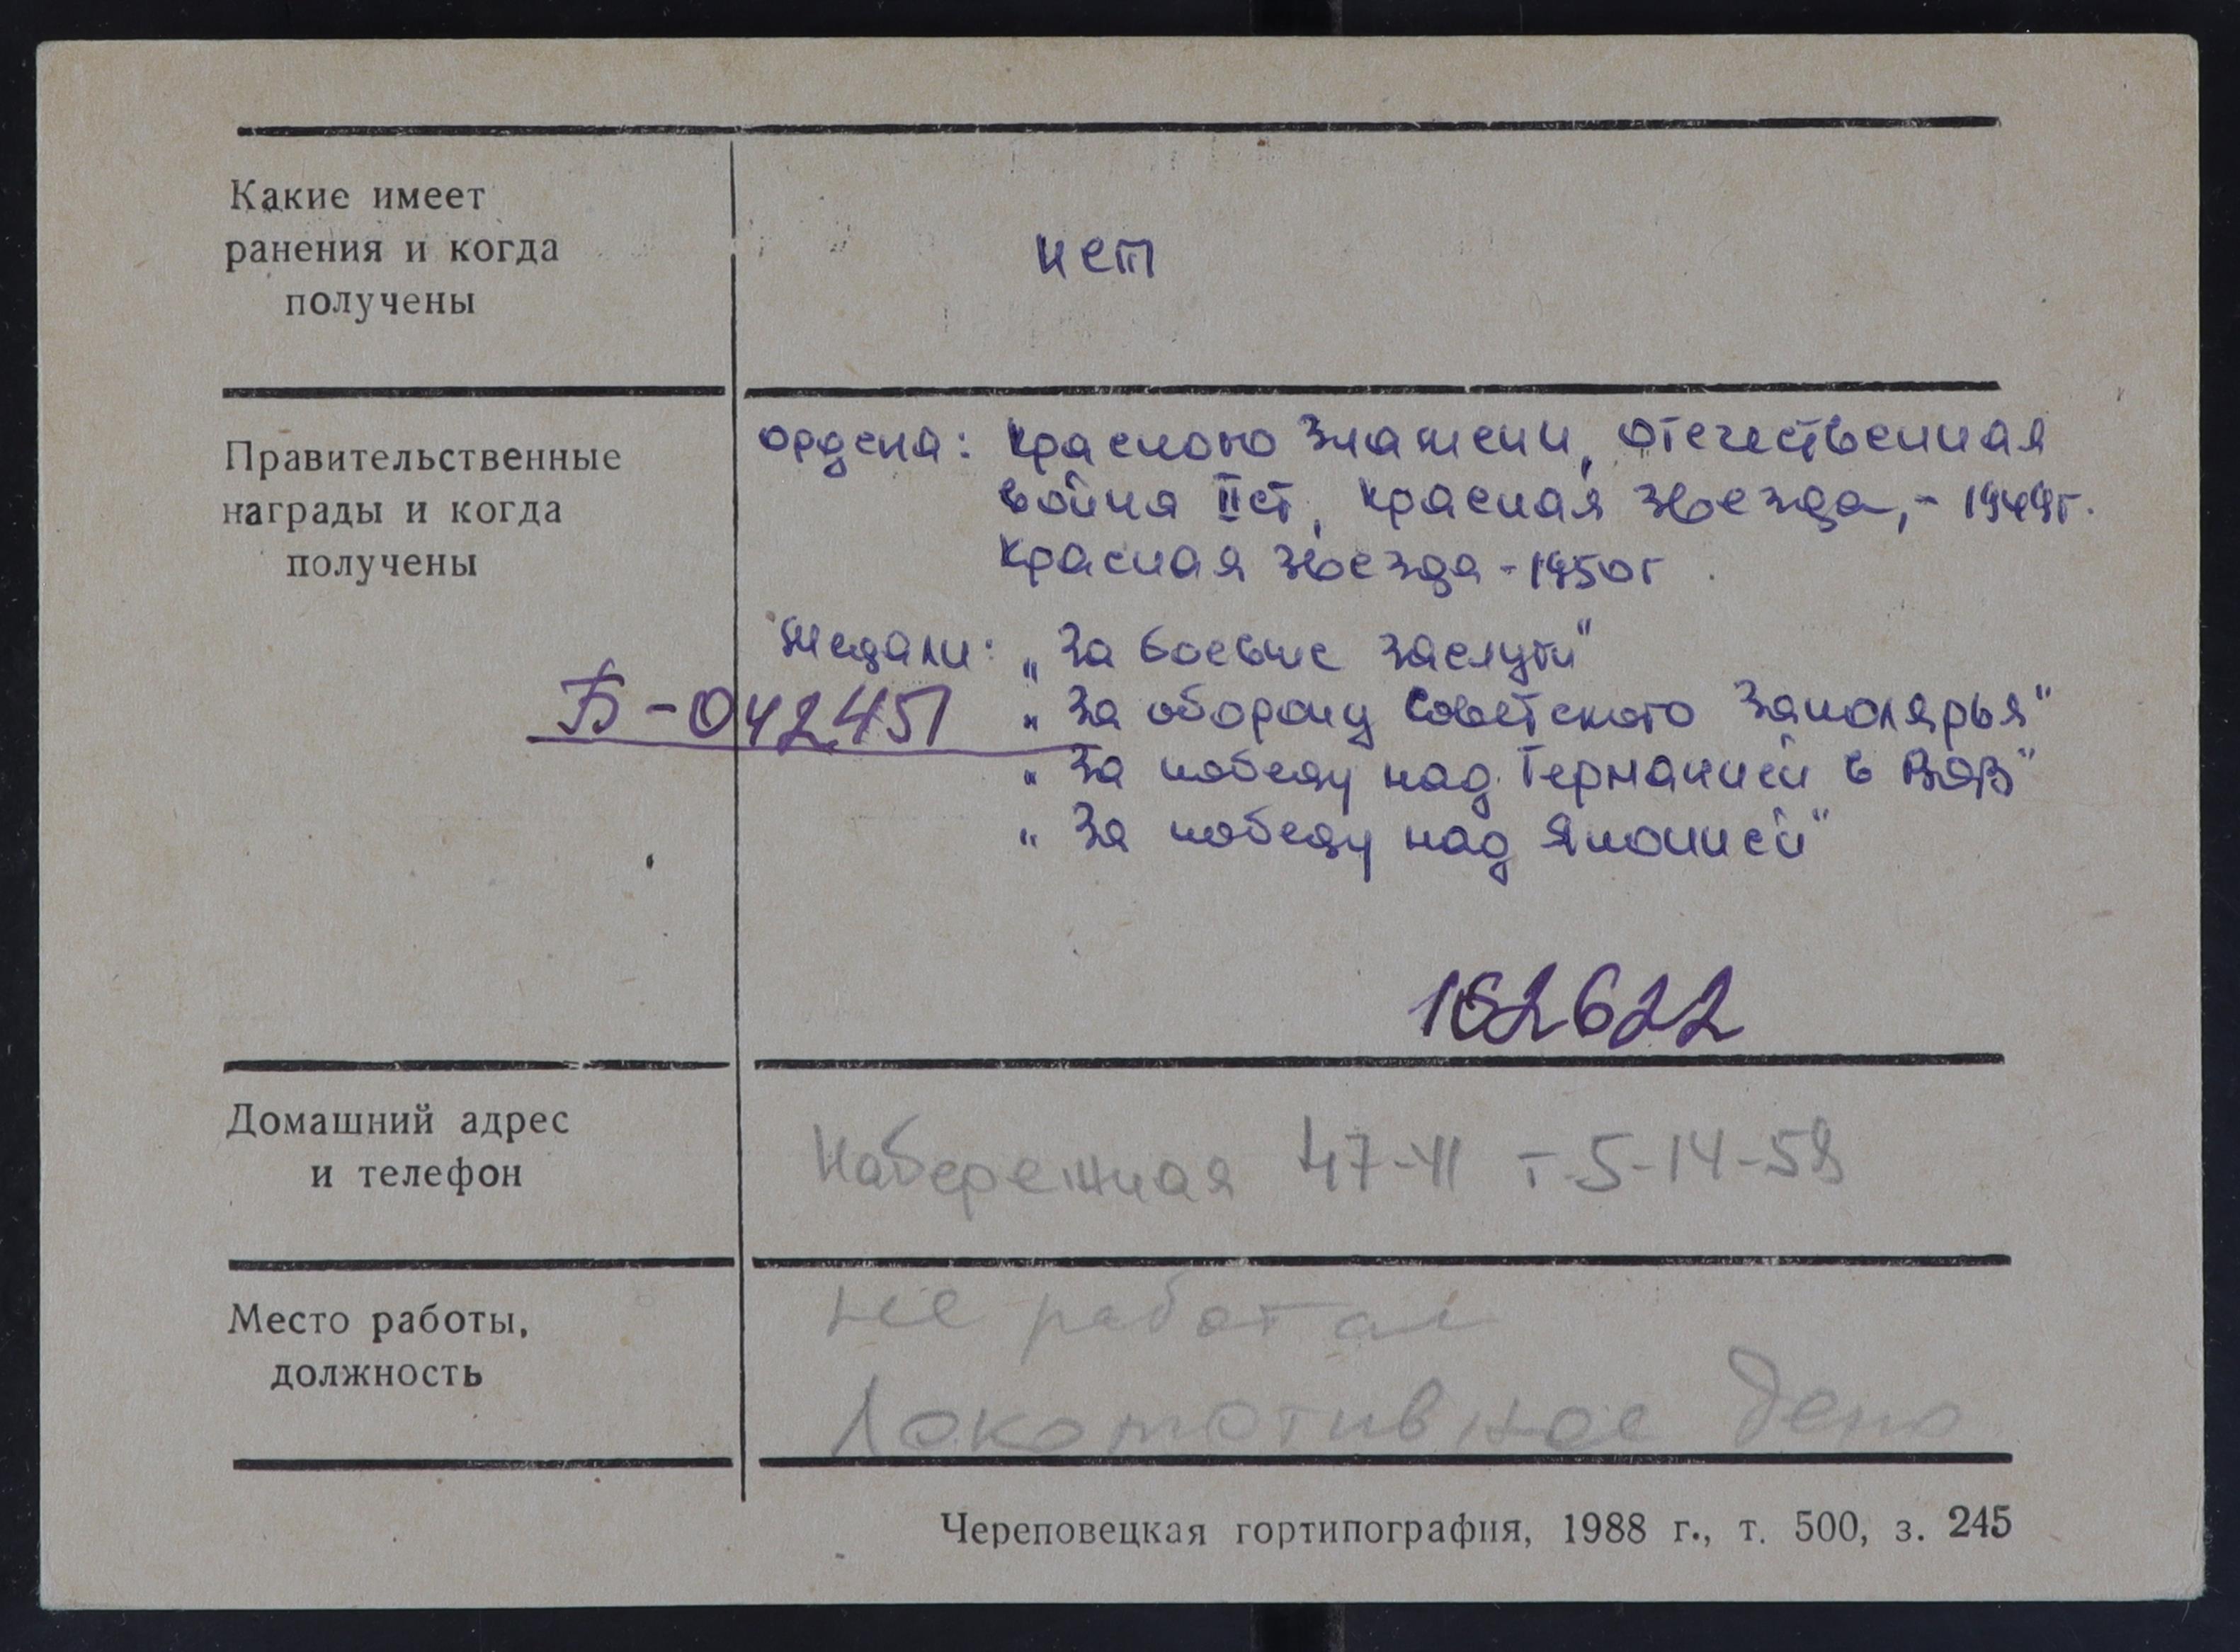 Какие имеет
ранения и когда
получены
нет
Правительственные
награды и когда
получены
ордена: Красного Знамени, Отечественная
война II ст, Красная звезда, - 1949г.
Красная звезда - 1950г
Медали: „За боевые заслуги"
Б-042451
„За оборону Советского Заполярья"
„За победу над Германией в ВОВ"
„За победу над Японией"
162622
Домашний адрес
и телефон
Набережная 47-41 т-5-14-59
Место работы,
должность
не работал
Локомотивное депо
Череповецкая гортипография, 1988 г., т. 500, з. 245